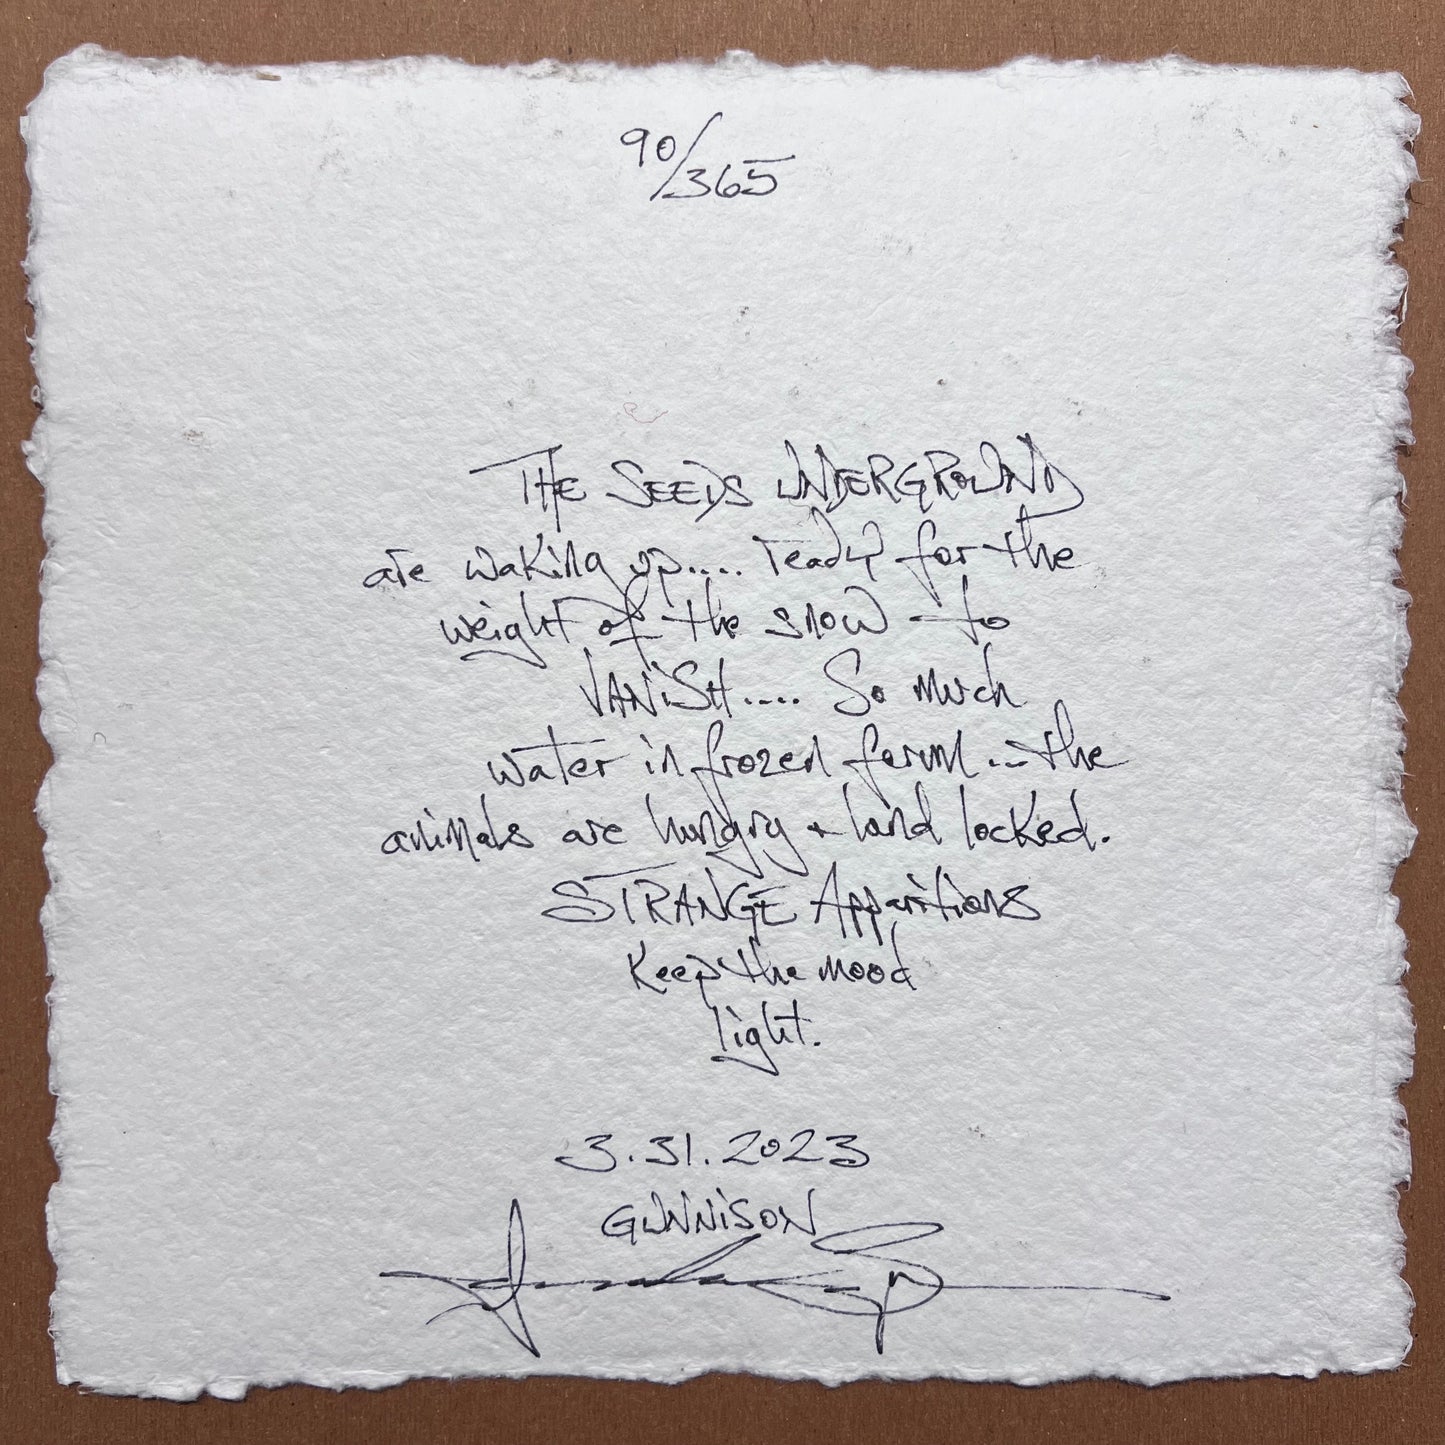 90/365
THE SEEDS UNDERGROUND
are waking up.... ready for the
weight of the snow to
VANISH.... So much
water in frozen form... the
animals are hungry + land locked.
STRANGE Apparitions
Keep the mood
light.
3.31.2023
GUNNISON